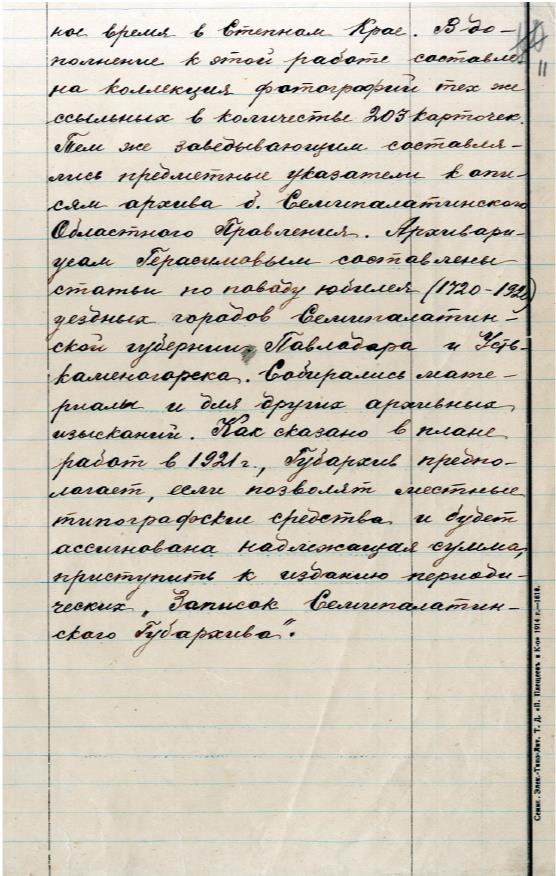 ное время в Степном Крае. В до-
полнение к этой работе составле-
на коллекция фотографий тех же
ссыльных в количестве 203 карточек.
Тем же заведывающим составля-
лись предметные указатели к опи-
сям архива б. Семипалатинского
Областного Правления. Архивари-
усом Герасимовым составлены
статьи по поводу юбилея (1720-1920)
уездных городов Семипалатин-
ской губернии Павлодара и Усть-
каменогорска. Собирались мате-
риалы и для других архивных
изысканий. Как сказано в плане
работ в 1921 г., Губархив предпо-
лагает, если позволят местные
типографские средства и будет
ассигнована надлежащая сумма,
приступить к изданию периоди-
ческих „Записок Семипалатин-
ского Губархива“.
11
Семип. Элек.-Типо-Лит. Т. Д. «П. Плещеевъ и К-о» 1914 г.—1618.